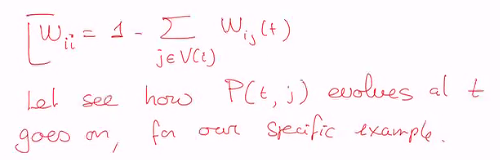 W_{ii} = 1 - \sum_{j \in V(t)} W_{ij}(t)
Let see how P(t, j) evolves al t
goes on, for our specific example.